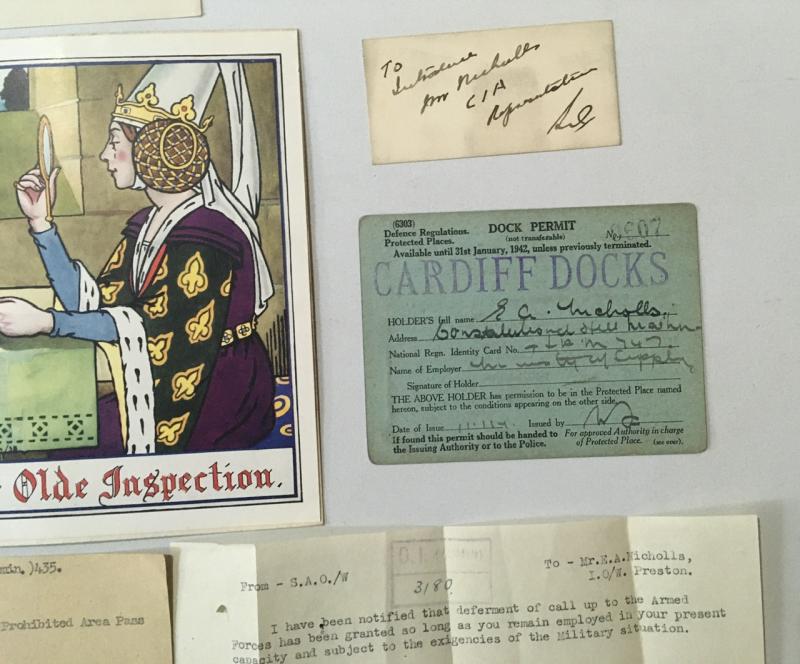 TO
Introduce
Mr Nicholls
CIA
Representative
(6303)
Defence Regulations.
Protected Places.
DOCK PERMIT
(not transferable)
No. 807
Available until 31st January, 1942, unless previously terminated.
CARDIFF DOCKS
HOLDER'S full name E. A. Nicholls.
Address Constitutional Hill
National Regn. Identity Card No. 747.
Name of Employer Ministry of Supply
Signature of Holder
THE ABOVE HOLDER has permission to be in the Protected Place named
hereon, subject to the conditions appearing on the other side.
Date of Issue Issued by
If found this permit should be handed to
the Issuing Authority or to the Police.
For approved Authority in charge
of Protected Place. (see over).
Olde Inspection.
min.)435.
Prohibited Area Pass
From - S.A.O./W
3180
To - Mr.E.A.Nicholls,
I.O/W. Preston.
I have been notified that deferment of call up to the Armed
Forces has been granted so long as you remain employed in your present
capacity and subject to the exigencies of the Military situation.